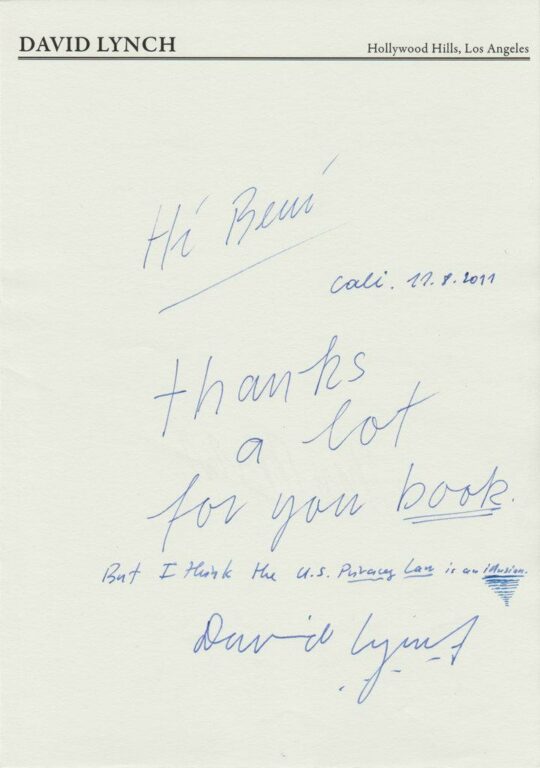 DAVID LYNCH
Hollywood Hills, Los Angeles
Hi Beni
Cali. 11.8.2011
thanks
a lot
for you book.
But I think the U.S. Privacy Law is an illusion.
David Lynch